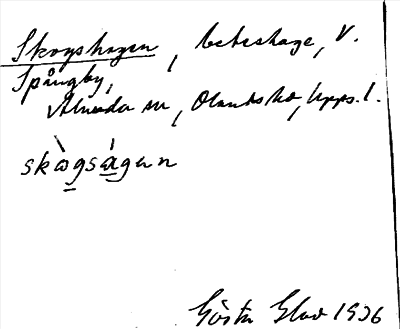 Skogshagen, beteshage, V.
Spångby,
Almunda sn, Olands hd, Upps. l.
skògságen
Gösta Glad 1936